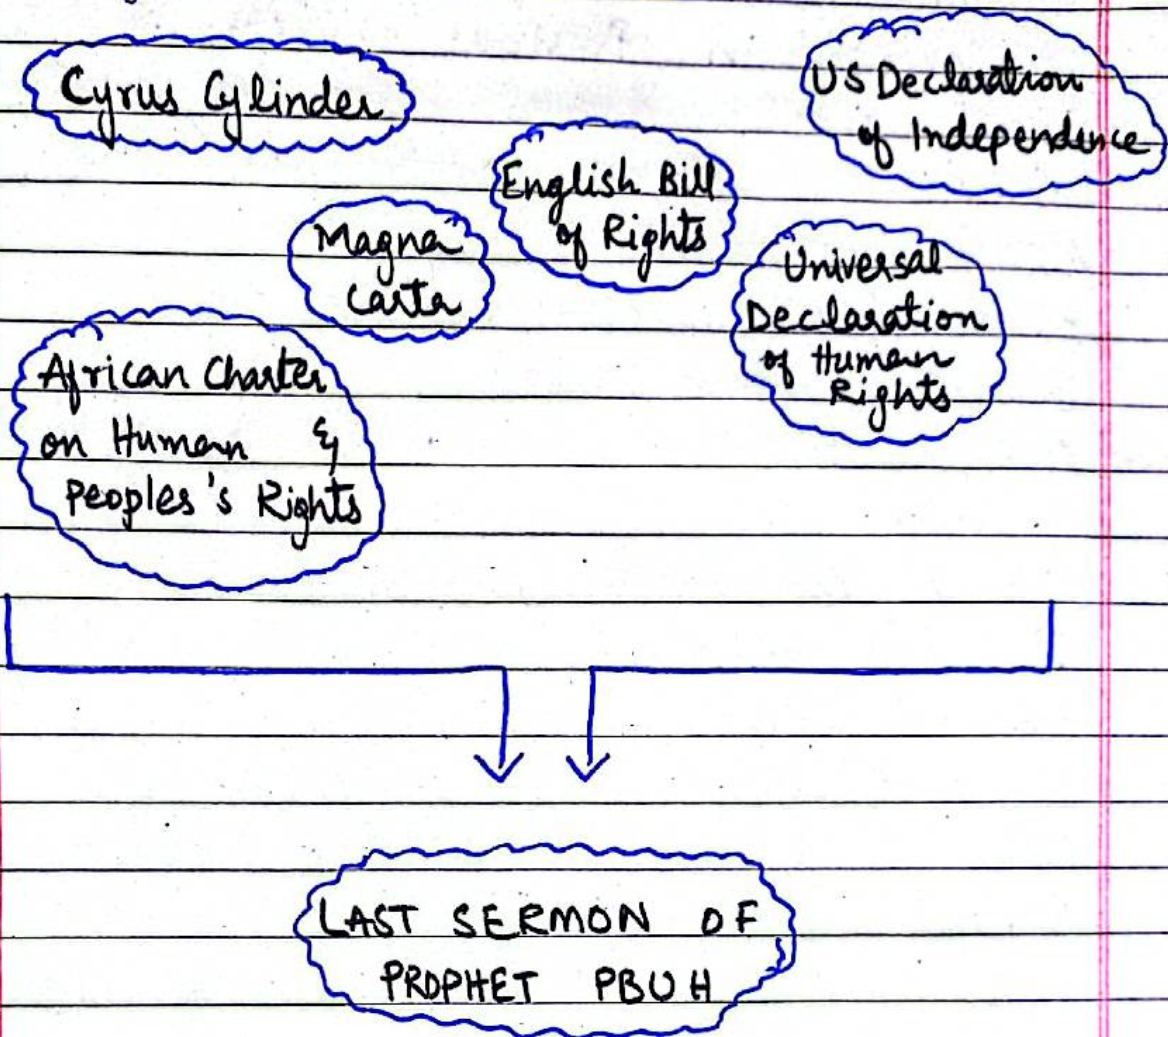 Cyrus Cylinder
US Declaration
of Independence
English Bill
of Rights
Magna
Carta
Universal
Declaration
of Human
Rights
African Charter
on Human &
Peoples's Rights
LAST SERMON OF
PROPHET PBUH